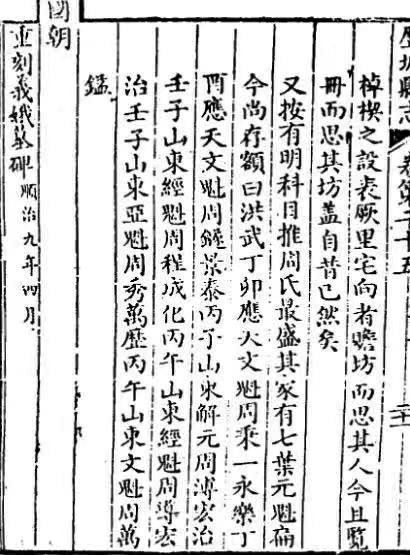 歷城縣志 卷第二十五
棹楔之設表厥里宅向者瞻坊而思其人今且覽
冊而思其坊蓋自昔已然矣
又按有明科目推周氏最盛其家有七葉元魁扁
今尚存額曰洪武丁卯應天文魁周秉一永樂丁
酉應天文魁周鐘景泰丙子山東解元周溥宏治
壬子山東經魁周程成化丙午山東經魁周導宏
治壬子山東亞魁周秀萬歷丙午山東文魁周萬
鑑
國朝
重刻義娥墓碑 順治九年四月